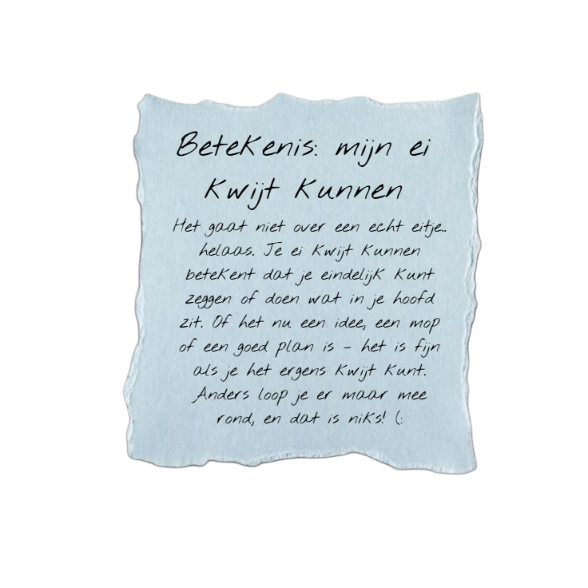 Betekenis: mijn ei
kwijt kunnen
Het gaat niet over een echt eitje..
helaas. Je ei kwijt kunnen
betekent dat je eindelijk kunt
zeggen of doen wat in je hoofd
zit. Of het nu een idee, een mop
of een goed plan is - het is fijn
als je het ergens kwijt kunt.
Anders loop je er maar mee
rond, en dat is niks! (: